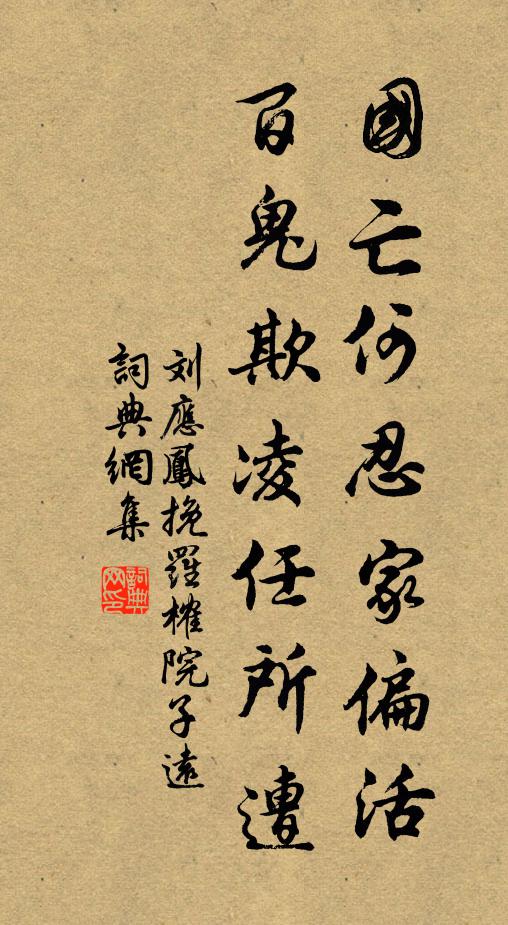 國亡何忍家偏活
百鬼欺凌任所遭
刘應鳳挽羅榷院子遠
詞典網集
詞典网印